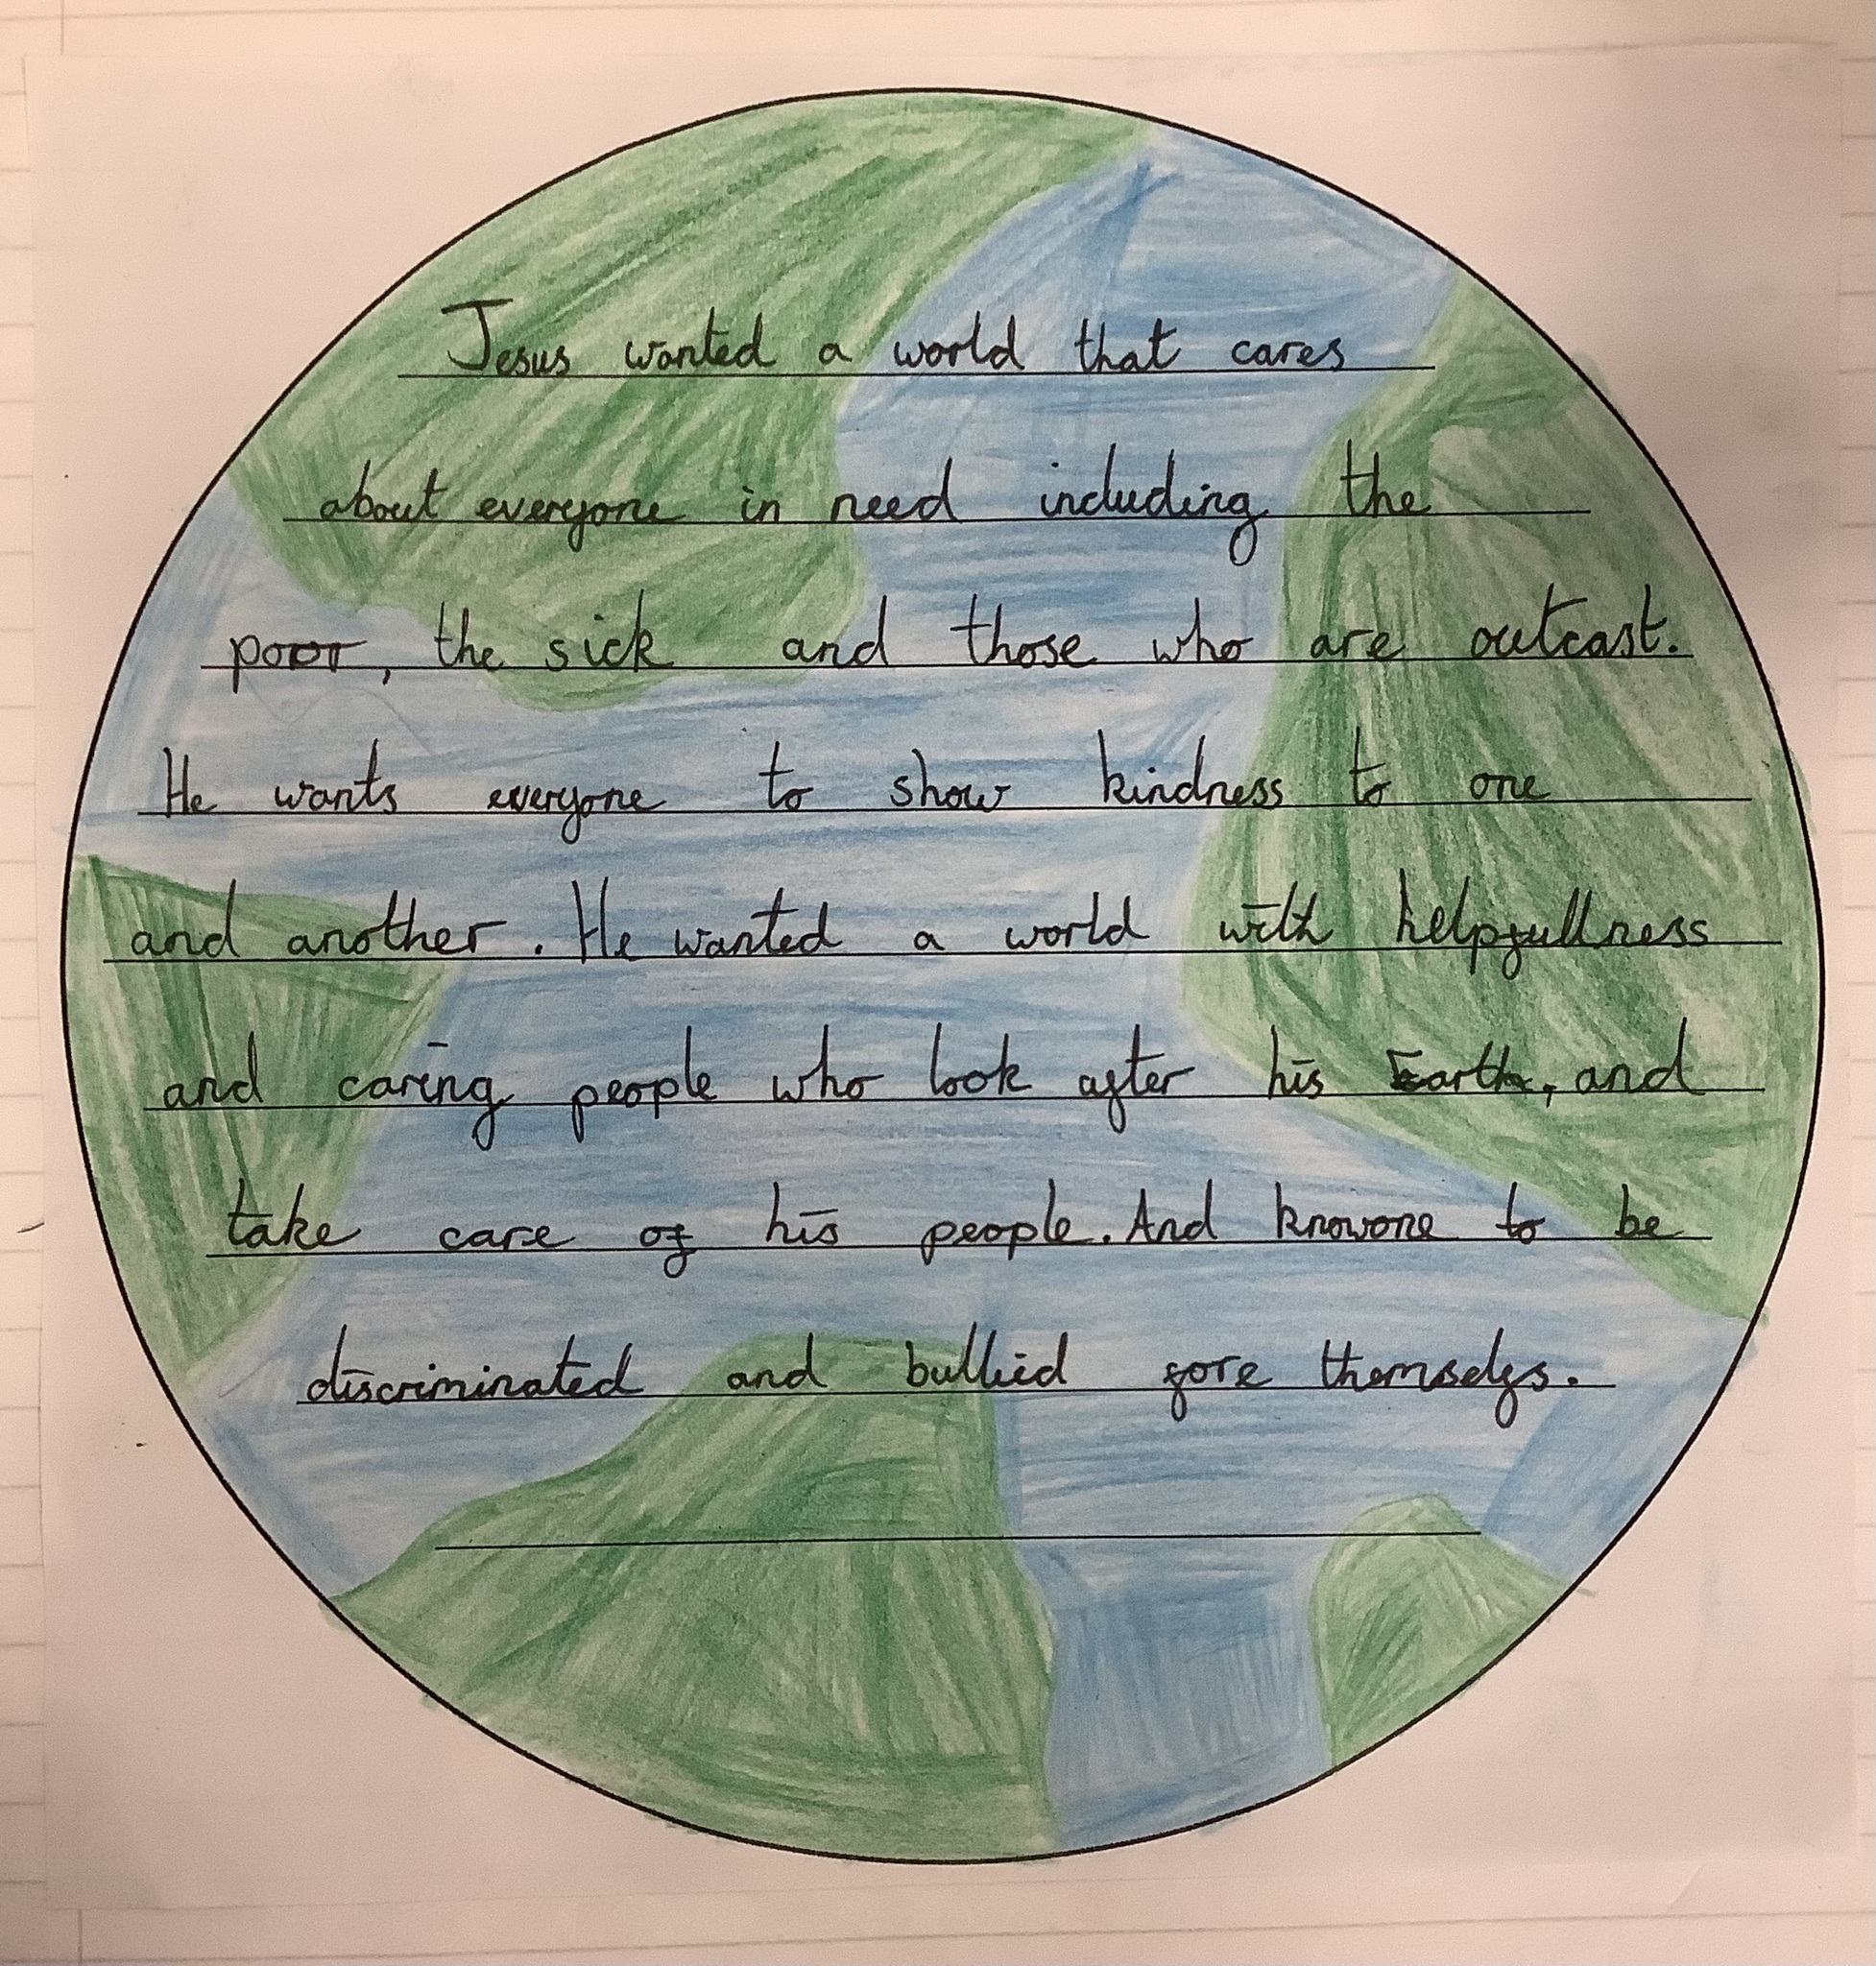 Jesus wanted a world that cares
about everyone in need including the
poor, the sick and those who are outcast.
He wants everyone to show kindness to one
and another. He wanted a world with helpfullness
and caring people who look after his Earth, and
take care of his people. And knowone to be
discriminated and bullied fore themselfs.